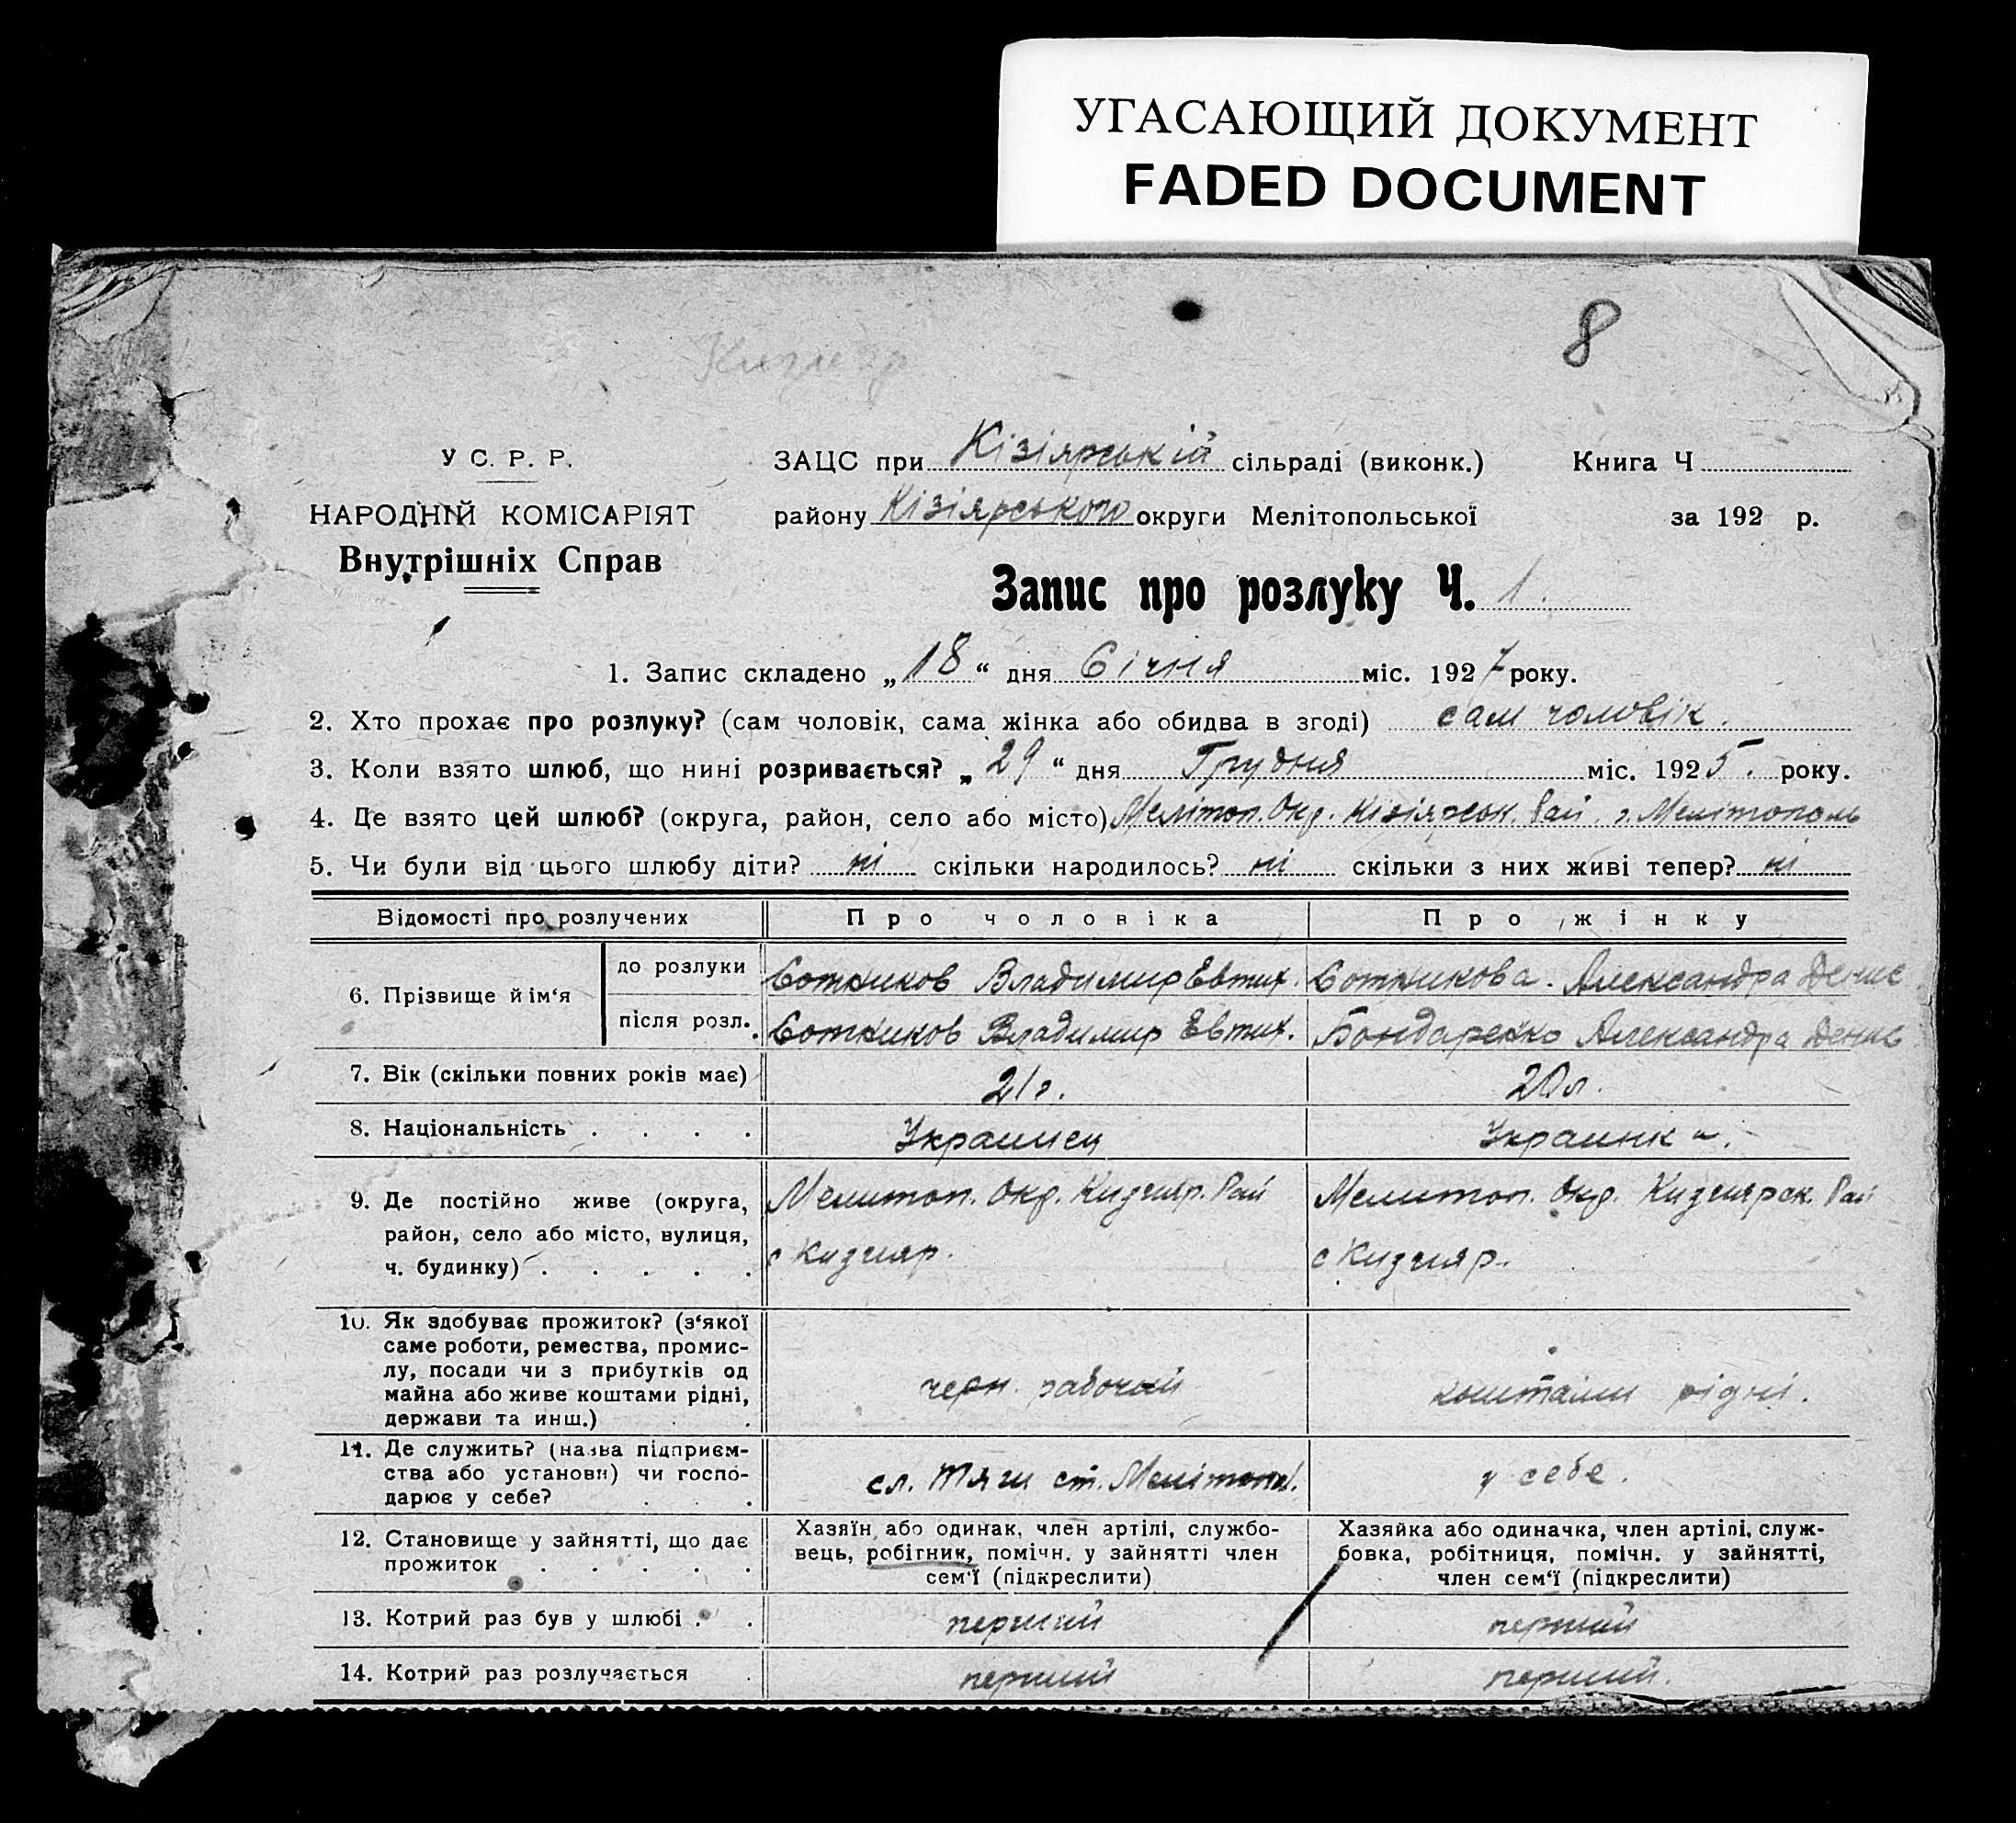 УГАСАЮЩИЙ ДОКУМЕНТ
FADED DOCUMENT
8
У С. Р. Р.
НАРОДНІЙ КОМІСАРІЯТ
Внутрішніх Справ
ЗАЦС при Кізіярській сільраді (виконк.) Книга Ч
району Кізіярського округи Мелітопольської за 192 р.
Запис про розлуку Ч. 1.
1. Запис складено „18“ дня Січня міс. 1927 року.
2. Хто прохає про розлуку? (сам чоловік, сама жінка або обидва в згоді) сам чоловік.
3. Коли взято шлюб, що нині розривається? „29“ дня Грудня міс. 1925. року.
4. Де взято цей шлюб? (округа, район, село або місто) Мелітоп. Окр. Кізіярськ. Рай. г. Мелітополь
5. Чи були від цього шлюбу діти? ні скільки народилось? ні скільки з них живі тепер? ні
Відомості про розлучених Про чоловіка Про жінку
6. Прізвище й ім‘я
до розлуки Сотников Владимир Евтих. Сотникова. Александра Денис
після розл. Сотников Владимир Евтих. Бондаренко Александра Денис
7. Вік (скільки повних років має) 21 г. 20 л.
8. Національність Украинец Украинка.
9. Де постійно живе (округа, район, село або місто, вулиця, ч. будинку)
Мелитоп. Окр. Кизияр. Рай
с Кизияр.
Мелитоп. Окр. Кизиярск. Рай
с Кизияр.
10. Як здобуває прожиток? (з‘якої
саме роботи, ремества, промис-
лу, посади чи з прибутків од
майна або живе коштами рідні,
держави та инш.)
черн. рабочий коштами рідні.
11. Де служить? (назва підприєм-
ства або установи) чи госпо-
дарює у себе?
сл. Тяги ст. Мелітопол. у себе.
12. Становище у зайнятті, що дає
прожиток
Хазяїн або одинак, член артілі, службо-
вець, робітник, помічн. у зайнятті член
сем‘ї (підкреслити)
Хазяйка або одиначка, член артілі, служ-
бовка, робітниця, помічн. у зайнятті,
член сем‘ї (підкреслити)
13. Котрий раз був у шлюбі перший перший
14. Котрий раз розлучається перший перший.